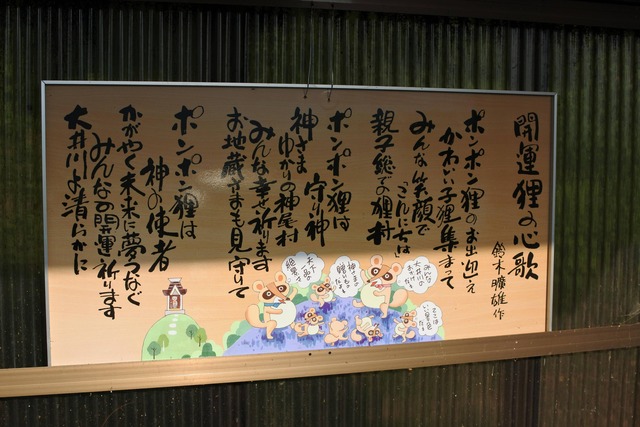 開運狸の心歌
鈴木曠雄作
ポンポン狸のお出迎え
かわいい子狸集まって
みんな笑顔で
こんにちは
親子総での狸村
ポンポン狸は
守り神
神さま
ゆかりの神尾村
みんな幸せ祈ります
お地蔵さまも見守りて
ポンポン狸は
神の使者
かがやく未来に夢つなぐ
みんなの開運祈ります
大井川よ清らかに